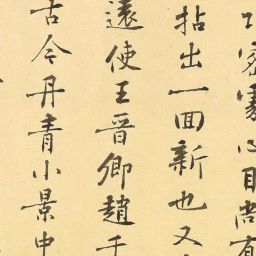 密心目尚有
拈出一回新也又
遠使王晉卿趙千
古今丹青小景中